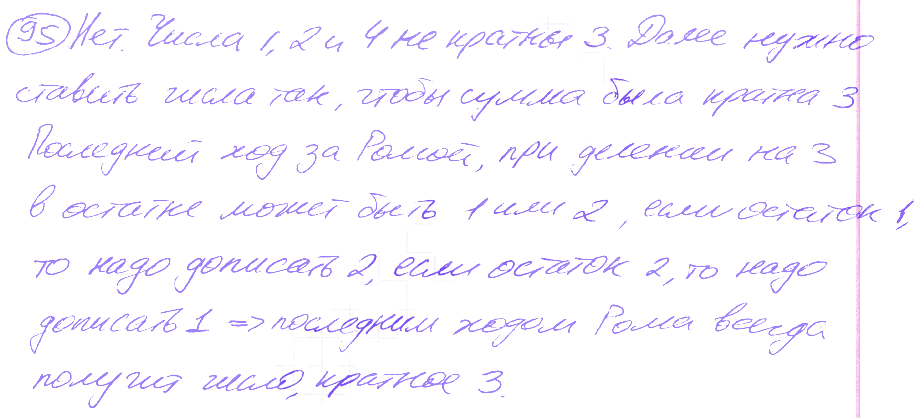 95 Нет. Числа 1, 2 и 4 не кратны 3. Даше нужно
ставить числа так, чтобы сумма была кратна 3
Последний ход за Ромой, при делении на 3
в остатке может быть 1 или 2, если остаток 1,
то надо дописать 2, если остаток 2, то надо
дописать 1 => последним ходом Рома всегда
получит число, кратное 3.